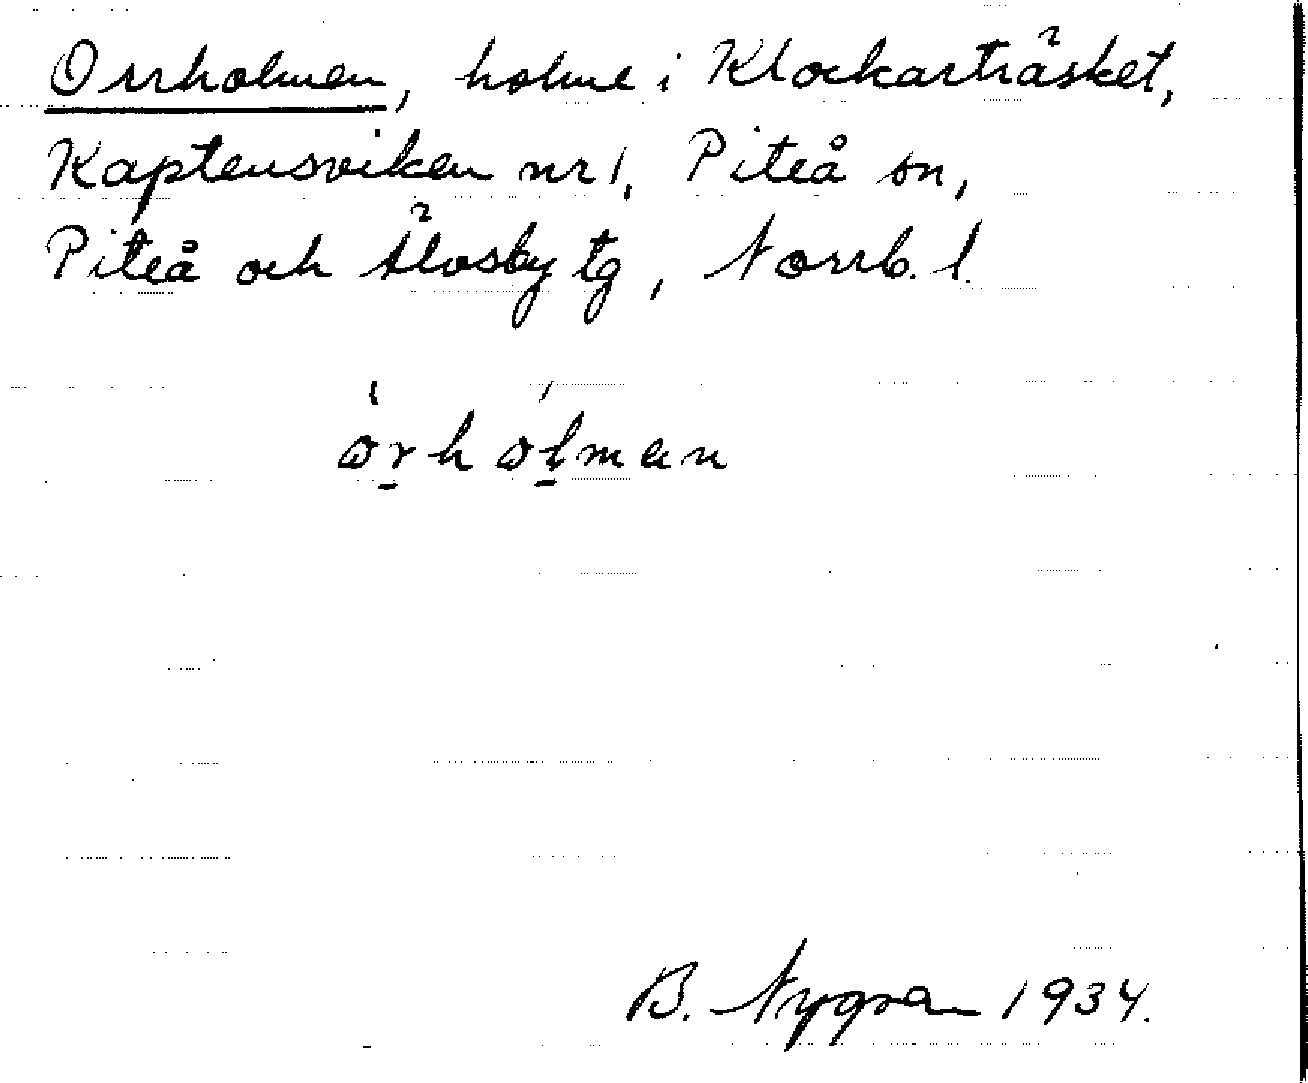 Orrholmen, holme i Klockarträsket,
Kaptensviken nr 1, Piteå sn,
Piteå och Älvsby tg, Norrb. l.
òrhólmen
B. Nygren 1934.